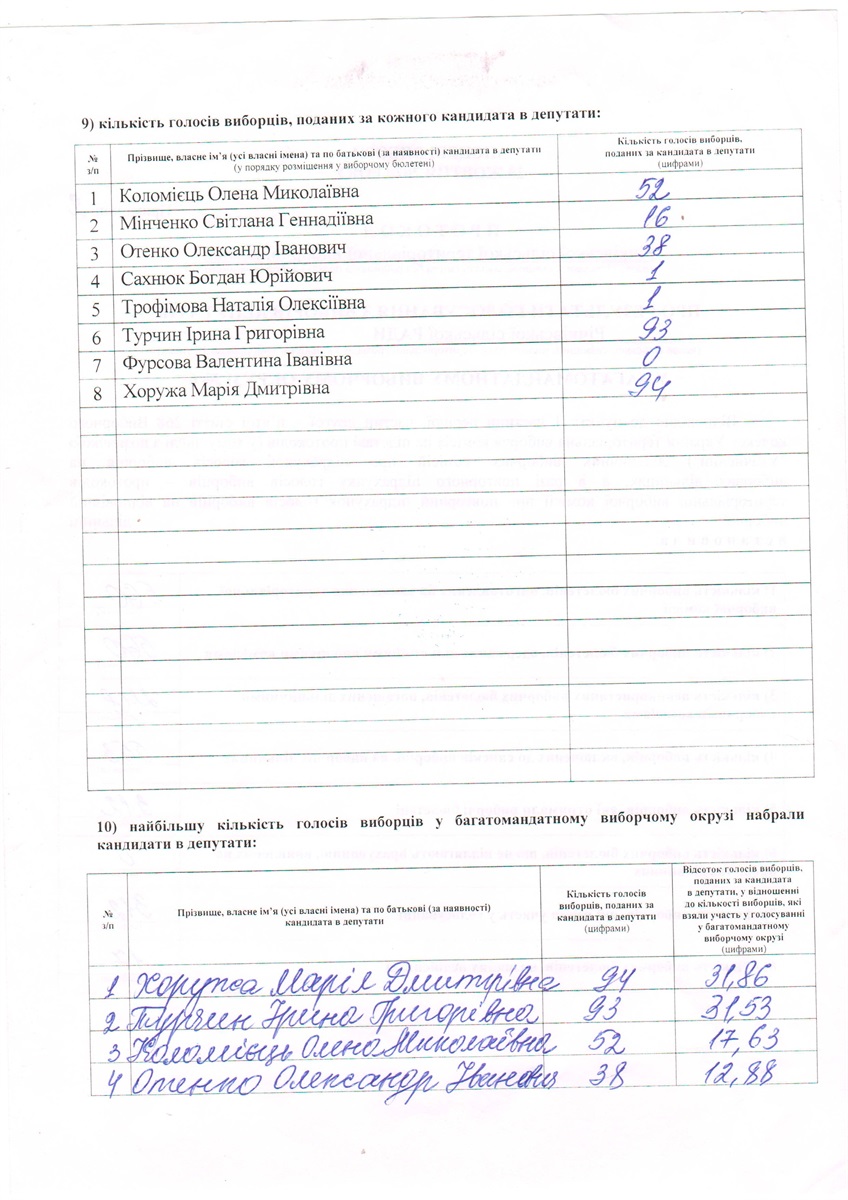 9) кількість голосів виборців, поданих за кожного кандидата в депутати:
№ з/п
Прізвище, власне ім’я (усі власні імена) та по батькові (за наявності) кандидата в депутати
(у порядку розміщення у виборчому бюлетені)
Кількість голосів виборців,
поданих за кандидата в депутати
(цифрами)
1 Коломієць Олена Миколаївна 52
2 Мінченко Світлана Геннадіївна 16
3 Отенко Олександр Іванович 38
4 Сахнюк Богдан Юрійович 1
5 Трофімова Наталія Олексіївна 1
6 Турчин Ірина Григорівна 93
7 Фурсова Валентина Іванівна 0
8 Хоружа Марія Дмитрівна 94
10) найбільшу кількість голосів виборців у багатомандатному виборчому окрузі набрали
кандидати в депутати:
№ з/п
Прізвище, власне ім’я (усі власні імена) та по батькові (за наявності)
кандидата в депутати
Кількість голосів
виборців, поданих за
кандидата в депутати
(цифрами)
Відсоток голосів виборців,
поданих за кандидата
в депутати, у відношенні
до кількості виборців, які
взяли участь у голосуванні
у багатомандатному
виборчому окрузі
(цифрами)
1 Хоружа Марія Дмитрівна 94 31,86
2 Турчин Ірина Григорівна 93 31,53
3 Коломієць Олена Миколаївна 52 17,63
4 Отенко Олександр Іванович 38 12,88